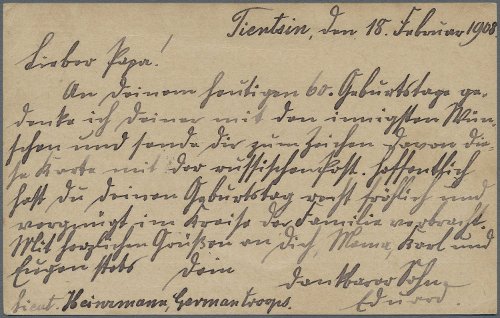 Tientsin, den 18. Februar 1908
Lieber Papa!
An deinem heutigen 60. Geburtstage ge-
denke ich deiner mit den innigsten Wün-
schen und sende dir zum Zeichen davon die-
se Karte mit der russischen Post. Hoffentlich
hast du deinen Geburtstag recht fröhlich und
vergnügt im Kreise der Familie verbracht.
Mit herzlichen Grüßen an dich, Mama, Karl und
Eugen stets dein dankbarer Sohn
Lieut. Heinzmann, German troops. Eduard.